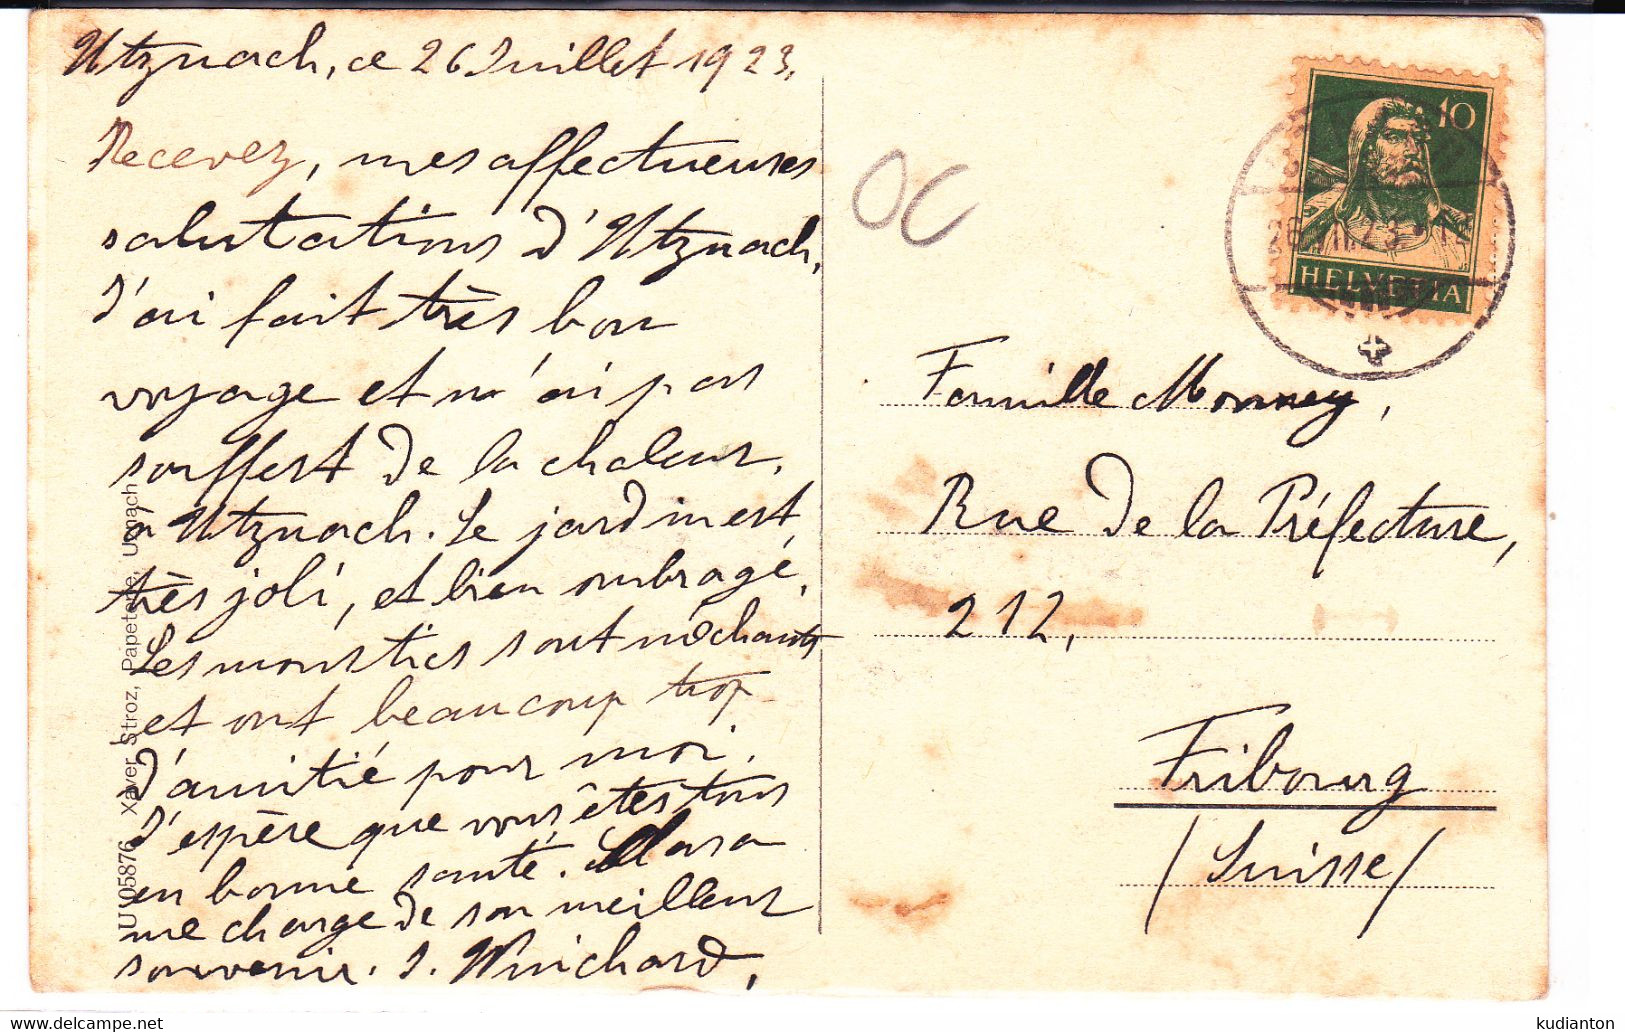 Utznach, ce 26 Juillet 1923.
Recevez, mes affectueuses
salutations d'Utznach.
J'ai fait très bon
voyage et n'ai pas
souffert de la chaleur.
à Utznach. Le jardin est,
très joli, et bien ombragé.
Les moustics sont méchants
et ont beaucoup trop
d'amitié pour moi.
J'espère que vous êtes tous
en bonne santé.
me charge de son meilleur
souvenir. J. Winchard,
U 105876 Xaver Stroz, Papeterie, Uznach
OC
10
HELVETIA
26. VII. 23
Famille Monney,
Rue de la Préfecture,
212,
Fribourg
/Suisse/
kudianton